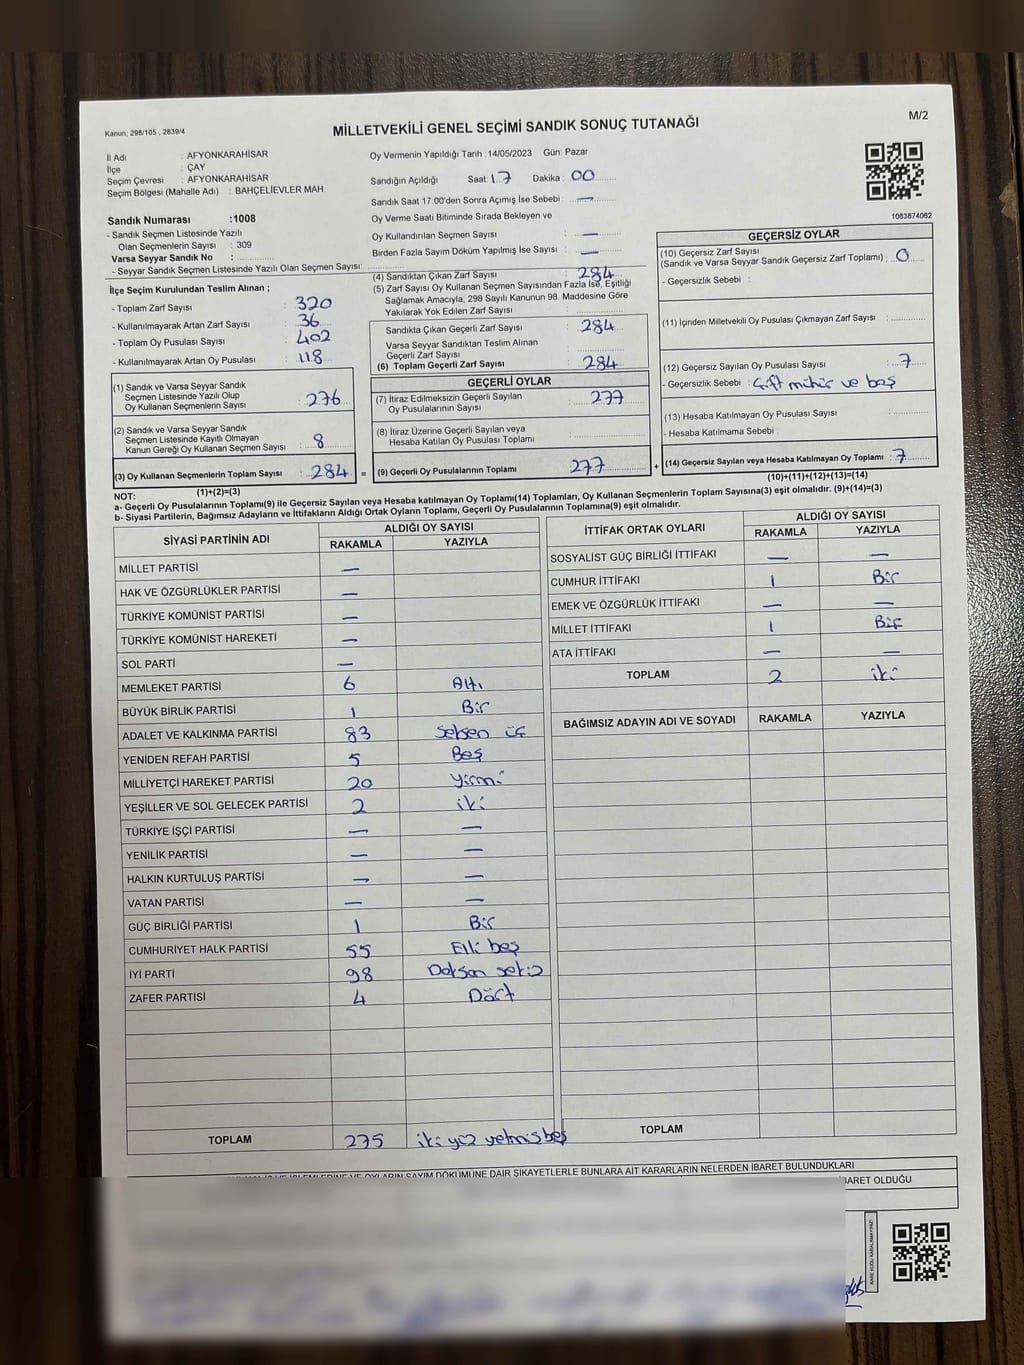 M/2
Kanun; 298/105 , 2839/4
MİLLETVEKİLİ GENEL SEÇİMİ SANDIK SONUÇ TUTANAĞI
İl Adı : AFYONKARAHİSAR
İlçe : ÇAY
Seçim Çevresi : AFYONKARAHİSAR
Seçim Bölgesi (Mahalle Adı) : BAHÇELİEVLER MAH.
Sandık Numarası :1008
- Sandık Seçmen Listesinde Yazılı
Olan Seçmenlerin Sayısı : 309
Varsa Seyyar Sandık No :
- Seyyar Sandık Seçmen Listesinde Yazılı Olan Seçmen Sayısı:
Oy Vermenin Yapıldığı Tarih :14/05/2023 Gün: Pazar
Sandığın Açıldığı Saat: 17 Dakika : 00
Sandık Saat 17:00'den Sonra Açımış İse Sebebi : —
Oy Verme Saati Bitiminde Sırada Bekleyen ve
Oy Kullandırılan Seçmen Sayısı : —
Birden Fazla Sayım Döküm Yapılmış İse Sayısı : —
1083874062
İlçe Seçim Kurulundan Teslim Alınan ;
- Toplam Zarf Sayısı : 320
- Kullanılmayarak Artan Zarf Sayısı : 36
- Toplam Oy Pusulası Sayısı : 402
- Kullanılmayarak Artan Oy Pusulası : 118
(1) Sandık ve Varsa Seyyar Sandık
Seçmen Listesinde Yazılı Olup
Oy Kullanan Seçmenlerin Sayısı : 276
(2) Sandık ve Varsa Seyyar Sandık
Seçmen Listesinde Kayıtlı Olmayan
Kanun Gereği Oy Kullanan Seçmen Sayısı : 8
(3) Oy Kullanan Seçmenlerin Toplam Sayısı : 284 =
(1)+(2)=(3)
(4) Sandıktan Çıkan Zarf Sayısı : 284
(5) Zarf Sayısı Oy Kullanan Seçmen Sayısından Fazla İse, Eşitliği
Sağlamak Amacıyla, 298 Sayılı Kanunun 98. Maddesine Göre
Yakılarak Yok Edilen Zarf Sayısı :
Sandıkta Çıkan Geçerli Zarf Sayısı : 284
Varsa Seyyar Sandıktan Teslim Alınan
Geçerli Zarf Sayısı :
(6) Toplam Geçerli Zarf Sayısı : 284
GEÇERLİ OYLAR
(7) İtiraz Edilmeksizin Geçerli Sayılan
Oy Pusulalarının Sayısı : 277
(8) İtiraz Üzerine Geçerli Sayılan veya
Hesaba Katılan Oy Pusulası Toplamı :
(9) Geçerli Oy Pusulalarının Toplamı : 277 +
GEÇERSİZ OYLAR
(10) Geçersiz Zarf Sayısı
(Sandık ve Varsa Seyyar Sandık Geçersiz Zarf Toplamı) : 0
- Geçersizlik Sebebi :
(11) İçinden Milletvekili Oy Pusulası Çıkmayan Zarf Sayısı :
(12) Geçersiz Sayılan Oy Pusulası Sayısı : 7
- Geçersizlik Sebebi : Çift mühür ve boş
(13) Hesaba Katılmayan Oy Pusulası Sayısı :
- Hesaba Katılmama Sebebi :
(14) Geçersiz Sayılan veya Hesaba Katılmayan Oy Toplamı : 7
(10)+(11)+(12)+(13)=(14)
NOT:
a- Geçerli Oy Pusulalarının Toplamı(9) ile Geçersiz Sayılan veya Hesaba katılmayan Oy Toplamı(14) Toplamları, Oy Kullanan Seçmenlerin Toplam Sayısına(3) eşit olmalıdır. (9)+(14)=(3)
b- Siyasi Partilerin, Bağımsız Adayların ve İttifakların Aldığı Ortak Oyların Toplamı, Geçerli Oy Pusulalarının Toplamına(9) eşit olmalıdır.
SİYASİ PARTİNİN ADI ALDIĞI OY SAYISI
RAKAMLA YAZIYLA
MİLLET PARTİSİ —
HAK VE ÖZGÜRLÜKLER PARTİSİ —
TÜRKİYE KOMÜNİST PARTİSİ —
TÜRKİYE KOMÜNİST HAREKETİ —
SOL PARTİ —
MEMLEKET PARTİSİ 6 Altı
BÜYÜK BİRLİK PARTİSİ 1 Bir
ADALET VE KALKINMA PARTİSİ 83 Seksen üç
YENİDEN REFAH PARTİSİ 5 Beş
MİLLİYETÇİ HAREKET PARTİSİ 20 Yirmi
YEŞİLLER VE SOL GELECEK PARTİSİ 2 iki
TÜRKİYE İŞÇİ PARTİSİ — —
YENİLİK PARTİSİ — —
HALKIN KURTULUŞ PARTİSİ — —
VATAN PARTİSİ — —
GÜÇ BİRLİĞİ PARTİSİ 1 Bir
CUMHURİYET HALK PARTİSİ 55 Elli beş
İYİ PARTİ 98 Doksan sekiz
ZAFER PARTİSİ 4 Dört
TOPLAM 275 iki yüz yetmiş beş
İTTİFAK ORTAK OYLARI ALDIĞI OY SAYISI
RAKAMLA YAZIYLA
SOSYALİST GÜÇ BİRLİĞİ İTTİFAKI — —
CUMHUR İTTİFAKI 1 Bir
EMEK VE ÖZGÜRLÜK İTTİFAKI — —
MİLLET İTTİFAKI 1 Bir
ATA İTTİFAKI — —
TOPLAM 2 iki
BAĞIMSIZ ADAYIN ADI VE SOYADI RAKAMLA YAZIYLA
TOPLAM
OYLARIN SAYIM DÖKÜMÜNE DAİR ŞİKAYETLERLE BUNLARA AİT KARARLARIN NELERDEN İBARET BULUNDUKLARI
İBARET OLDUĞU
KARE KODU KARALAMAYINIZ!